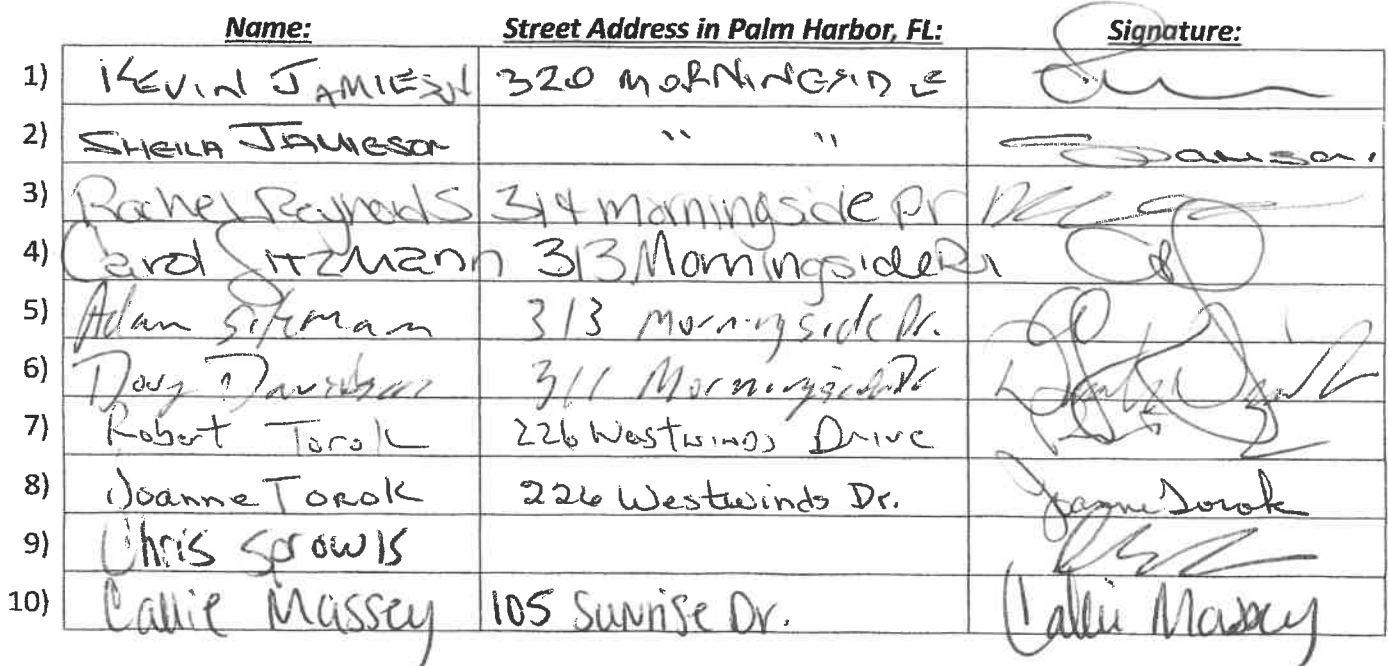 Name: Street Address in Palm Harbor, FL: Signature:
1) KEVIN JAMIESON 320 MORNINGSIDE
2) SHEILA JAMIESON " "
3) Rachel Reynolds 314 Morningside Dr
4) Carol Sitzmann 313 Morningside Dr
5) Adam 313 Morningside Dr.
6) Doug Davidson 311 Morningside Dr
7) Robert Torok 226 Westwinds Drive
8) Joanne Torok 226 Westwinds Dr. Joanne Torok
9) Chris Sprowls
10) Callie Massey 105 Sunrise Dr. Callie Massey